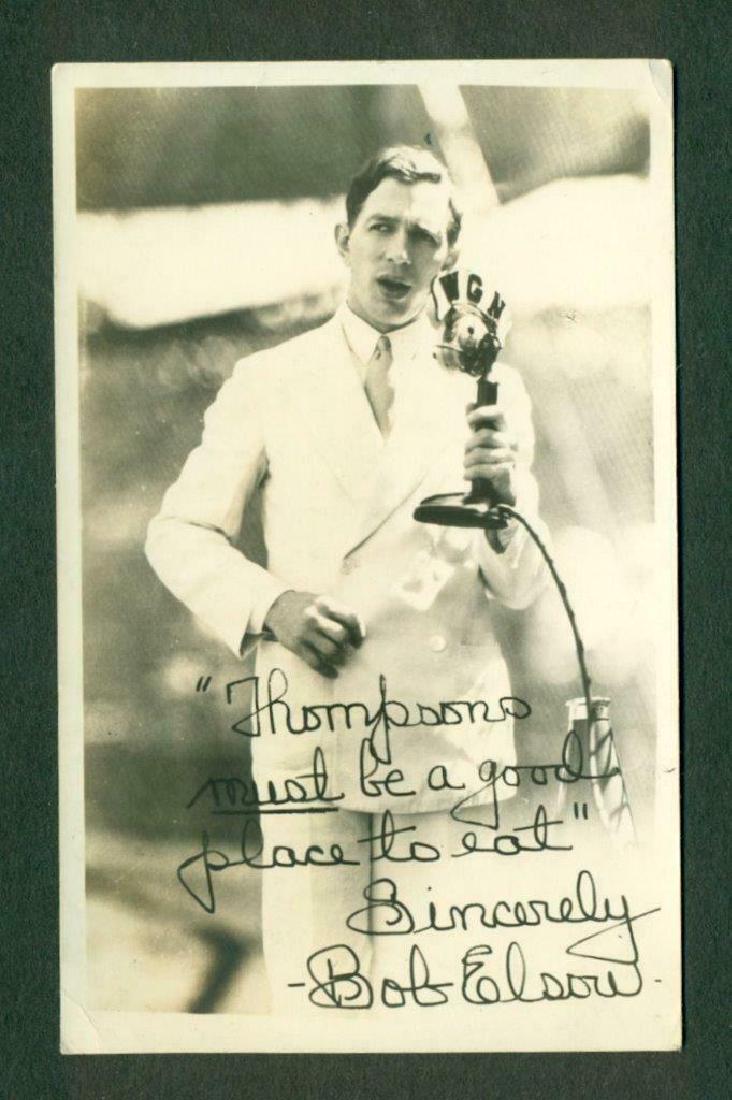 WGN
"Thompsons
must be a good
place to eat"
Sincerely
-Bob Elson-